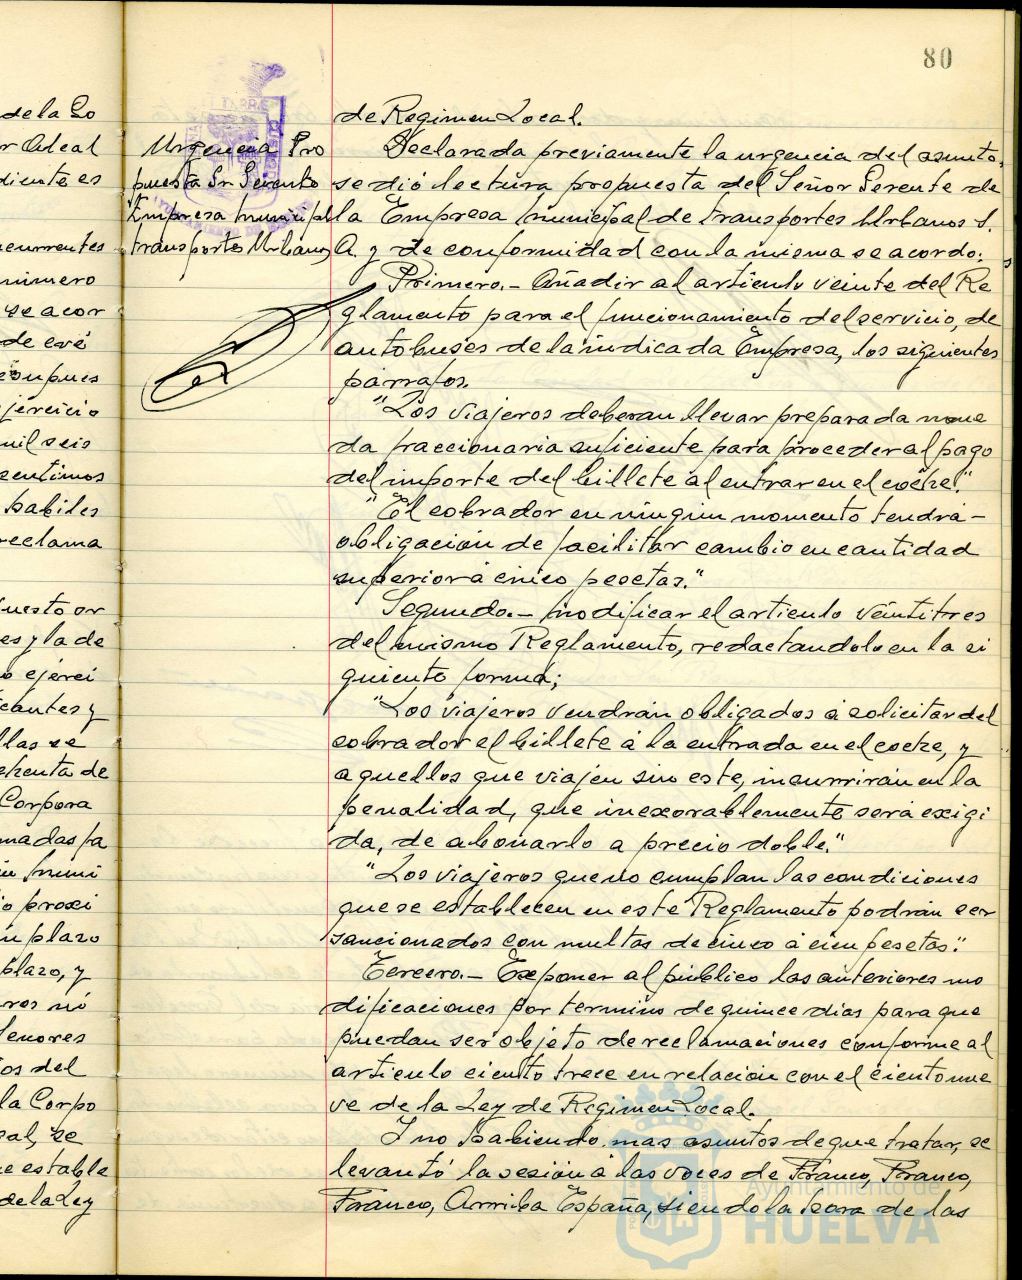 80
de la Go
r Ideal
diente es
ncurrentes
número
se acor
de eve
esupues
jercicio
mil seis
centimos
habiles
reclama
puesto or
es y la de
o ejerci
cantes y
llas se
chenta de
Corpora
madas pa
in muni
io proxi
un plazo
plazo, y
ros nú
Señores
os del
la Corpo
cal, se
e estable
de la Ley
Urgencia Pro
puesta Sr Gerente
Empresa municipal
transportes Urbanos
de Regimen Local.
Declarada previamente la urgencia del asunto,
se dió lectura propuesta del Señor Gerente de
la Empresa Municipal de transportes Urbanos S.
A. y de conformidad con la misma se acordo:
Primero.- Añadir al articulo veinte del Re
glamento para el funcionamiento del servicio, de
autobuses de la indicada Empresa, los siguientes
parrafos.
"Los viajeros deberan llevar preparada mone
da fraccionaria suficiente para proceder al pago
del importe del billete al entrar en el coche."
"El cobrador en ningun momento tendrá-
obligación de facilitar cambio en cantidad
superior á cinco pesetas."
Segundo.- modificar el articulo veintitres
del mismo Reglamento, redactandolo en la si
guiente forma;
"Los viajeros vendrán obligados á solicitar del
cobrador el billete á la entrada en el coche, y
aquellos que viajen sin este, incurrirán en la
penalidad, que inexorablemente será exigi
da, de abonarlo a precio doble."
"Los viajeros que no cumplan las condiciones
que se establecen en este Reglamento podrán ser
sancionados con multas de cinco á cien pesetas."
Tercero.- Exponer al público las anteriores mo
dificaciones por termino de quince dias para que
puedan ser objeto de reclamaciones conforme al
articulo ciento trece en relación con el ciento nue
ve de la Ley de Regimen Local.
Y no habiendo mas asuntos de que tratar, se
levantó la sesión á las voces de Franco, Franco,
Franco, Arriba España, siendo la hora de las
Ayuntamiento de
HUELVA